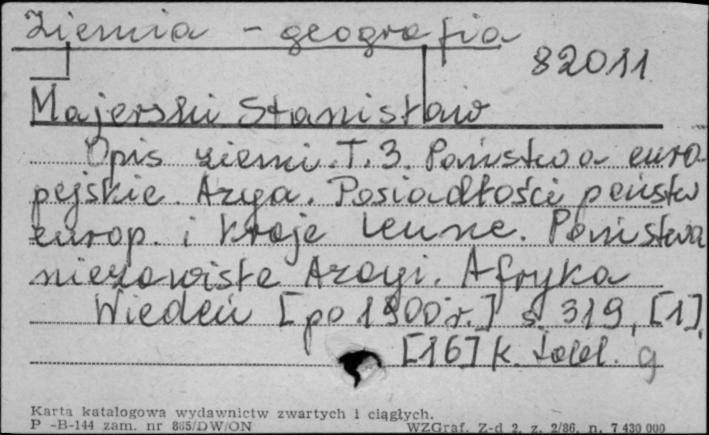 Ziemia - geografia
82011
Majerski Stanisław
Opis ziemi. T. 3. Państwa euro
pejskie. Azya. Posiadłości państw
europ. i kraje lenne. Państwa
niezawisłe Azyi. Afryka
Wiedeń [po 1900 r.] s. 319, [1],
[16] k. tabl. g
Karta katalogowa wydawnictw zwartych i ciągłych.
P -B-144 zam. nr 865/DW/ON WZGraf. Z-d 2, z. 2/86, n. 7 430 000